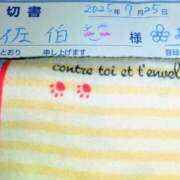 切書 2025年7月25日
佐伯 様
とおり 申し上げます。
contre toi et t'envol